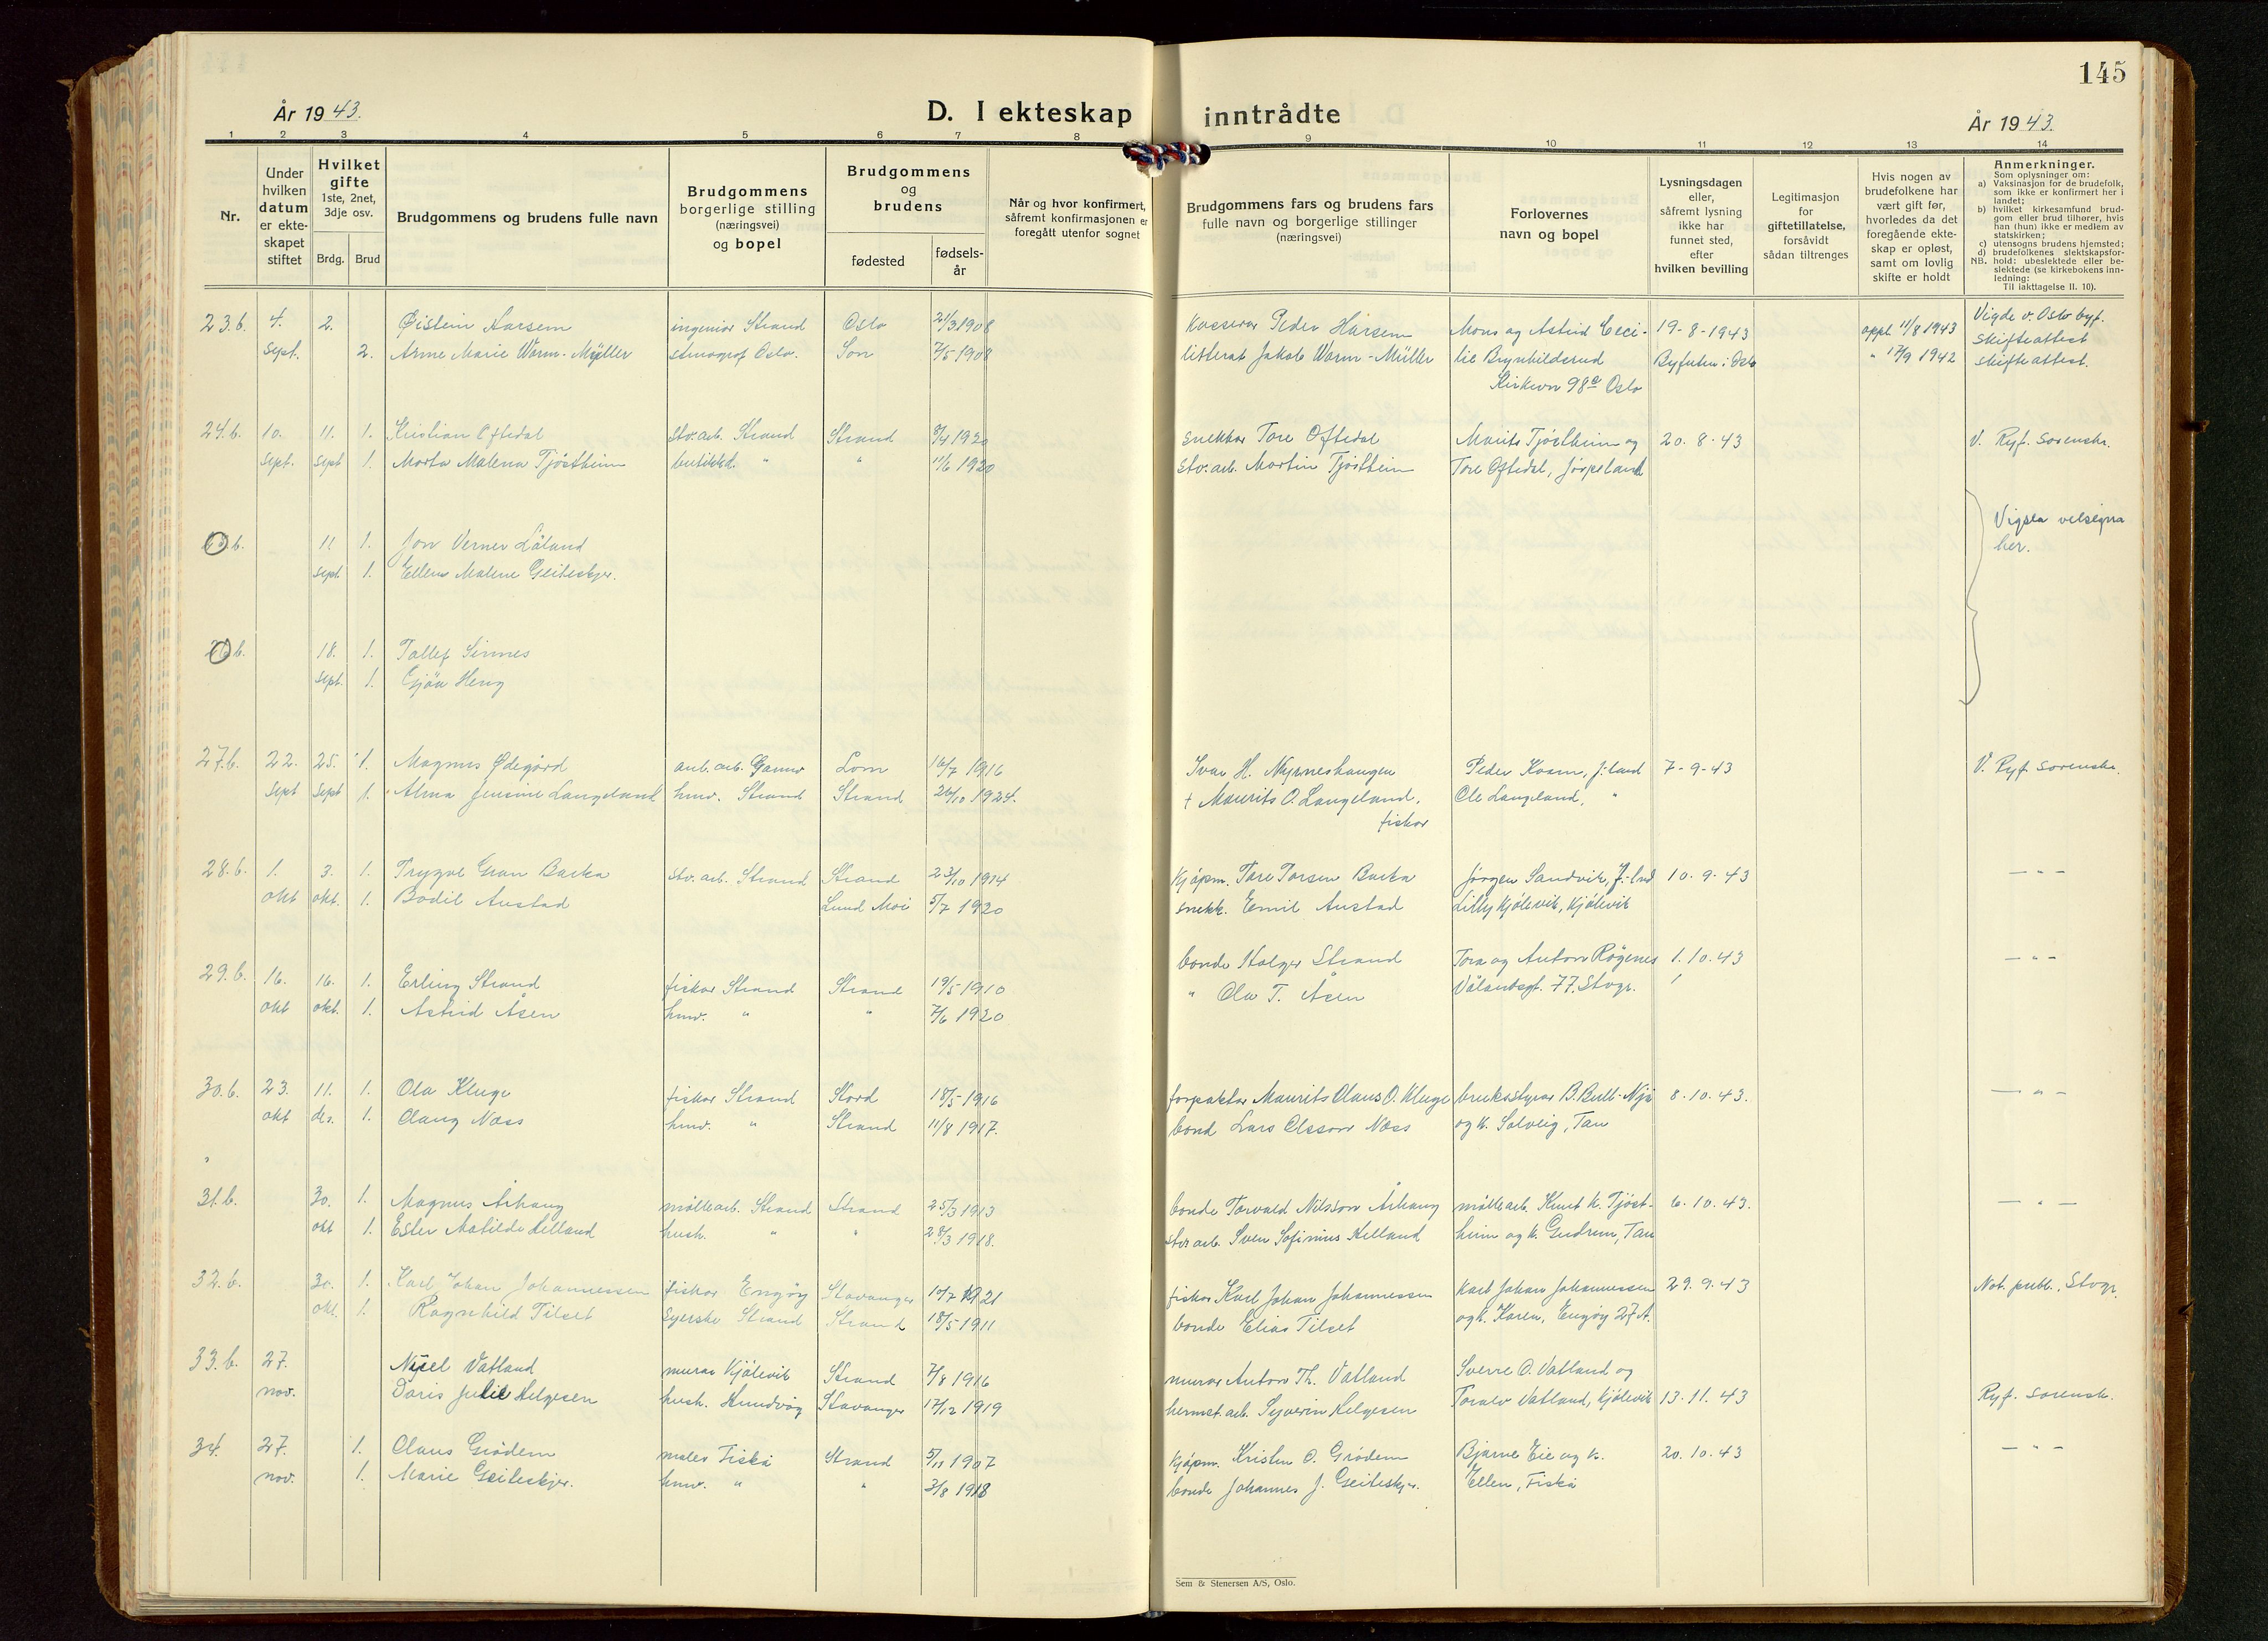 145
År 1943.
D. I ekteskap inntrådte
År 1943.
1 2 3 4 5 6 7 8 9 10 11 12 13 14
Nr.
Under
hvilken
datum
er ekte-
skapet
stiftet
Hvilket
gifte
1ste, 2net,
3dje osv.
Brdg. Brud
Brudgommens og brudens fulle navn
Brudgommens
borgerlige stilling
(næringsvei)
og bopel
Brudgommens
og
brudens
fødested
fødsels-
år
Når og hvor konfirmert,
såfremt konfirmasjonen er
foregått utenfor sognet
Brudgommens fars og brudens fars
fulle navn og borgerlige stillinger
(næringsvei)
Forlovernes
navn og bopel
Lysningsdagen
eller,
såfremt lysning
ikke har
funnet sted,
efter
hvilken bevilling
Legitimasjon
for
giftetillatelse,
forsåvidt
sådan tiltrenges
Hvis nogen av
brudefolkene har
vært gift før,
hvorledes da det
foregående ekte-
skap er opløst,
samt om lovlig
skifte er holdt
Anmerkninger.
Som oplysninger om:
a) Vaksinasjon for de brudefolk,
som ikke er konfirmert her i
landet;
b) hvilket kirkesamfund brud-
gom eller brud tilhører, hvis
han (hun) ikke er medlem av
statskirken;
c) utensogns brudens hjemsted;
d) brudefolkenes slektskapsfor-
NB. hold: ubeslektede eller be-
slektede (se kirkebokens inn-
ledning:
Til iakttagelse II. 10).
23.b. 4. 2. Øistein Harsem ingeniør Strand Oslo 21/3 1908 kasserer Peder Harsem Mons og Astrid Ceci- 19-8-1943 oppl 11/8 1943 Vigde v. Oslo byf. skifteattest
sept. 2. Anne Marie Worm-Müller stenograf Oslo. Son 7/5 1908 litterat Jakob Worm-Müller lie Brynhildsrud Byfuten i Oslo " 17/9 1942 skifteattest.
Kirkevn 98e Oslo
24.b. 10. 11. 1. Kristian Oftedal stv.arb. Strand Strand 8/4 1920 snekkar Tore Oftedal Marits Tjøstheim og 20.8.43 V. Ryf. Sorenskr.
sept. sept 1. Marta Malena Tjøstheim butikkd. " " 11/6 1920 stv.arb. Martin Tjøstheim Tore Oftedal, Jørpeland
b. 11 1. Jon Verner Låland Vigsla velsigna
sept. 1. Ellen Malene Geiteskjer. her.
b. 18. 1. Tallef Sinnes
sept. 1. Gjøa Heng
27.b. 22. 25. 1. Magnus Ødegård anl.arb. Strand Lom 16/7 1916 Ivar H. Nyrneshaugen Peder Kosm, J:land 7-9-43 V. Ryf. sorenskr.
sept sept 1. Alma Jensine Langeland hmv. Strand Strand 26/10 1924. † Maurits O. Langeland, Ole Langeland, "
fiskar
28.b. 1. 3. 1. Trygve Gran Barka stv.arb. Strand Strand 23/10 1914 kjøpm. Tore Torsen Barka Jørgen Sandvik, J:lnd 10.9.43 — " —
okt okt. 1. Bodil Austad Lund Moi 5/7 1920 snekk. Emil Austad Lilly Kjølevik, Kjølevik
29.b. 16. 16. 1. Erling Strand fiskar Strand Strand 19/5 1910 bonde Holger Strand Tora og Anton Røgenes 1.10.43 — " —
okt okt. 1. Astrid Åsen hmv. " " 7/6 1920 " Ola T. Åsen Vålandsgt. 77. Stvgr.
30.b. 23. 11. 1. Ola Kluge fiskar Strand Stord 18/5 1916 forpaktar Maurits Olaus O. Kluge bruksstyrar B. Bull-Njå 8.10.43. — " —
okt des. 1. Olaug Næss hmv. " Strand 11/8 1917. bond Lars Olsson Næss og k. Solveig, Tau
31.b. 30. 1. Magnus Århaug møllearb. Strand Strand 25/3 1913 bonde Torvald Nilsson Århaug møllearb. Knut K. Tjøst- 6.10.43. — " —
okt 1. Ester Matilde Helland hush. " " 28/3 1918. stv.arb. Sven Sofinius Helland heim og k. Gudrun, Tau
32.b. 30. 1. Karl Johan Johannessen fiskar Engøy Stavanger 10/7 1921 fiskar Karl Johan Johannessen Karl Johan Johannessen 29.9.43 Not. publ., Stvgr.
okt. 1. Ragnhild Tilset Syerske Strand Strand 18/5 1911 bonde Elias Tilset og k. Karen, Engøy 27A.
33.b. 27. Nisel Vatland murar Kjølevik Strand 7/8 1916 murar Anton Th. Vatland Sverre O. Vatland og
nov. Doris Julie Helgesen hush. Hundvåg Stavanger 17/12 1919 hermet.arb. Syverin Helgesen Toralv Vatland, Kjølevik 13.11.43 Ryf. sorensk.
34. 27. 1. Olaus Grødem maler Fiskå Strand 5/11 1907 kjøpm. Kristen O. Grødem Bjarne Eie og k. 20.10.43 — " —
nov. 1. Marie Geiteskjer. hmv. " " 3/8 1918 bonde Johannes J. Geiteskjer. Ellen, Fiskå
Sem & Stenersen A/S, Oslo.